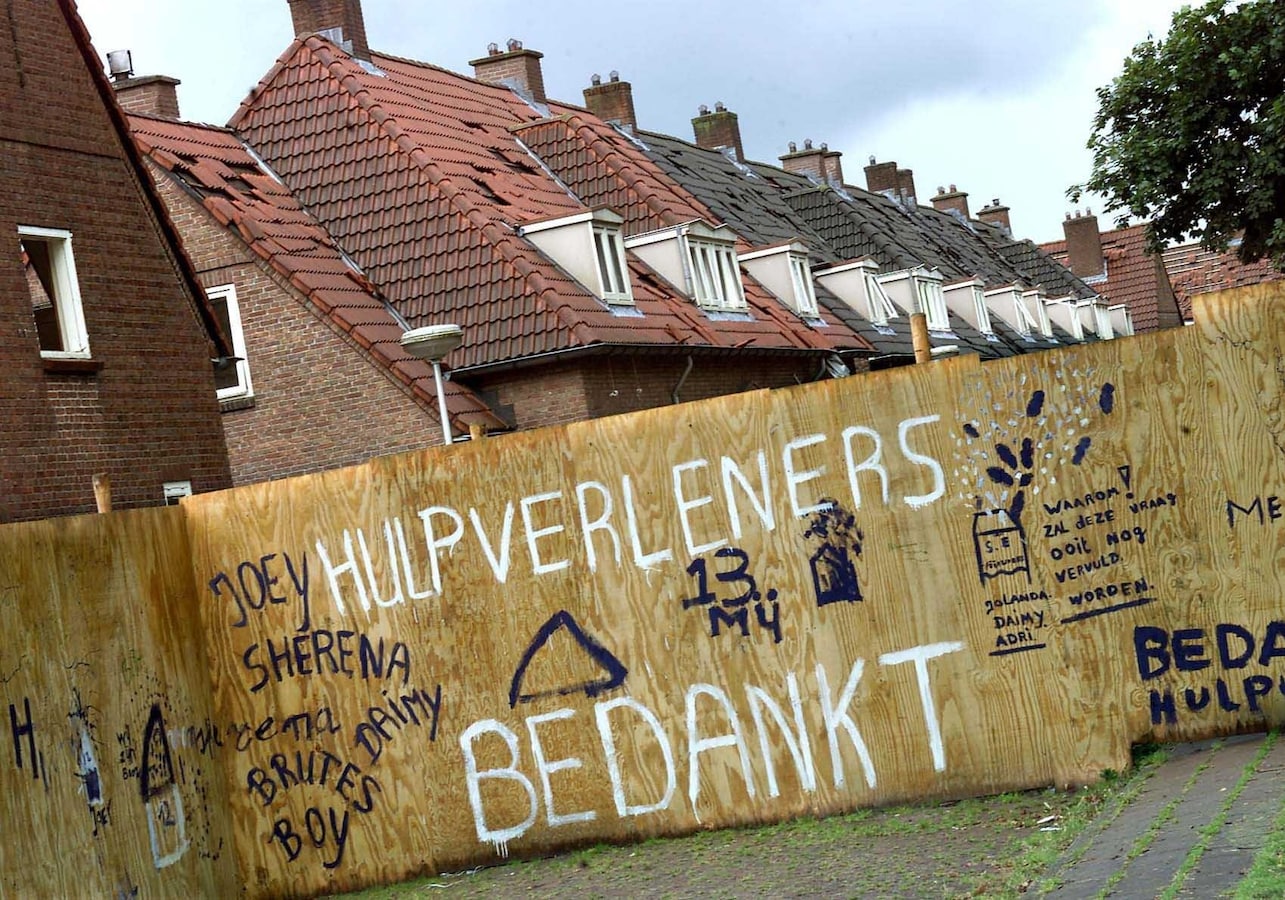 HULPVERLENERS
BEDANKT
JOEY
SHERENA
DAIMY
BRUTES
BOY
13
MY
S.E
WAAROM!
ZAL DEZE VRAAG
OOIT NOG
VERVULD.
WORDEN.
JOLANDA.
DAIMY
ADRI.
ME
BEDA
HULPV
H
12